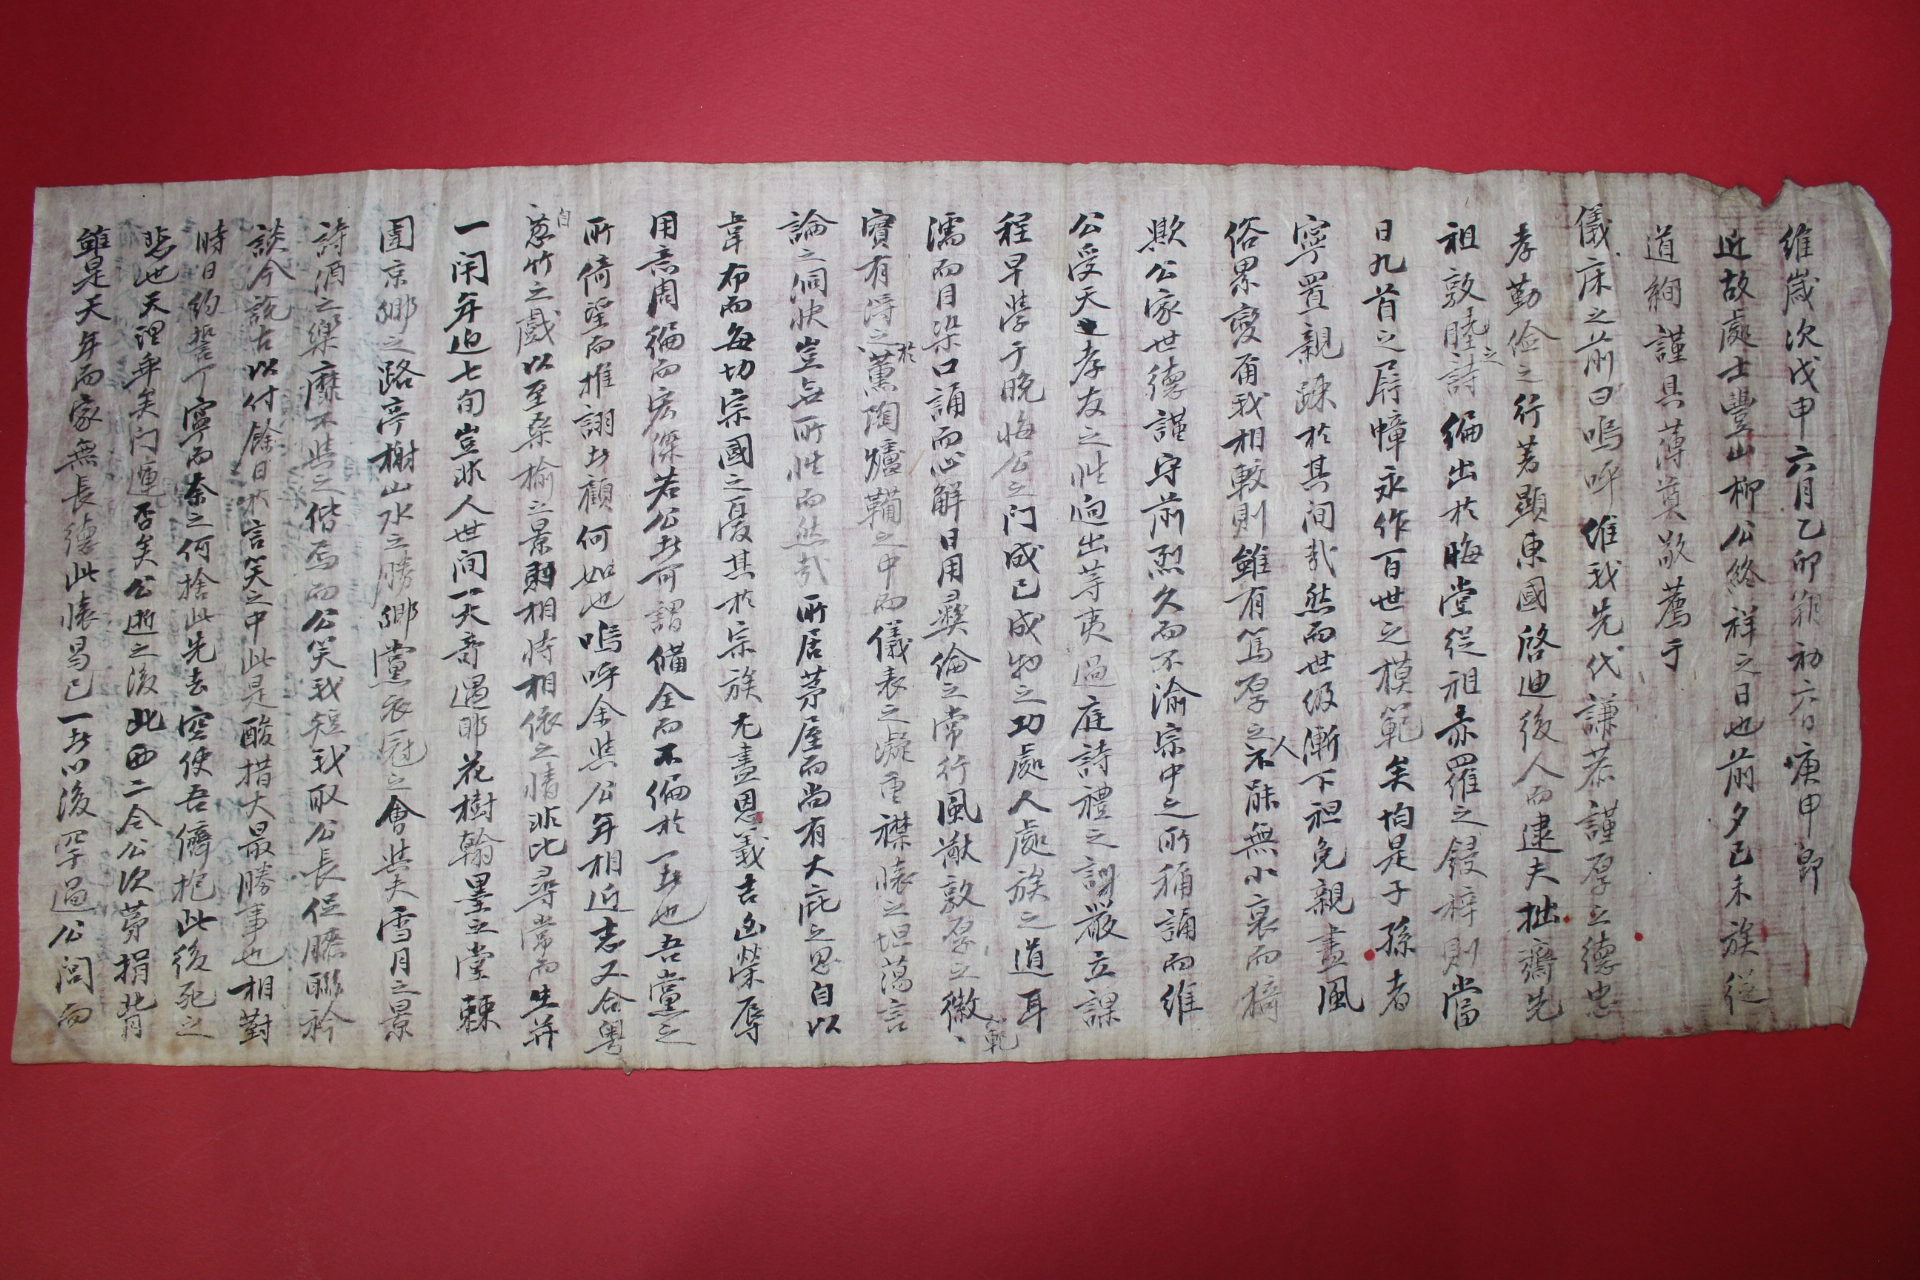 維歲次戊申六月乙卯朔初六日庚申卽
近故處士豐山柳公終祥之日也前夕己未族從
道絢謹具薄奠敬薦于
儀床之前曰嗚呼維我先代謙恭謹厚立德忠
孝勤儉之行著顯東國啓迪後人而逮夫拙齋先
祖敦睦之詩編出於晦堂從祖赤羅之鋟梓則當
日九首之屛幛永作百世之模範矣均是子孫者
寧置親踈於其间哉然而世级漸下袒免親盡風
俗累變而我相較則雖有篤厚之人不能無小衰而猗
歟公家世德謹守前烈久而不渝宗中之所稱誦而維
公受天之孝友之性逈出等夷過庭詩禮之訓嚴立課
程早學于晩悔公之门成己成物之功處人處族之道耳
濡而目染口誦而心解日用彛倫之常行風猷敦厚之徽範
實有得於之薰陶爐鞴之中而儀表之凝重襟懷之坦蕩言
論之洞快豈無所性而然哉所居茅屋而尚有大庇之思自以
韋布而每切宗國之憂其於宗族尤盡恩義吉凶榮辱
用意周徧而宏深若公者可謂備全而不偏於一者也吾黨之
所倚望而推詡者顧何如也嗚呼余與公年相近志又合粤
自葱竹之戲以至桑榆之景則相恃相依之情非比尋常而生并
一閈年迫七旬豈非人世间一大奇遇耶花樹翰墨之堂棘
圍京鄕之路亭榭山水之勝鄕黨衣冠之會與夫雪月之景
詩酒之樂靡不與之偕焉而公笑我短我取公長促膝聯衿
談今說古以付餘日於言笑之中此是酸措大最勝事也相對
時日約誓丁寧而奈之何捨此先去空使吾儕抱此後死之
悲也天理乖矣门運否矣公逝之後此西二令公次第捐背
雖是天年而家無長德此懷曷已一者以後罕過公閭而